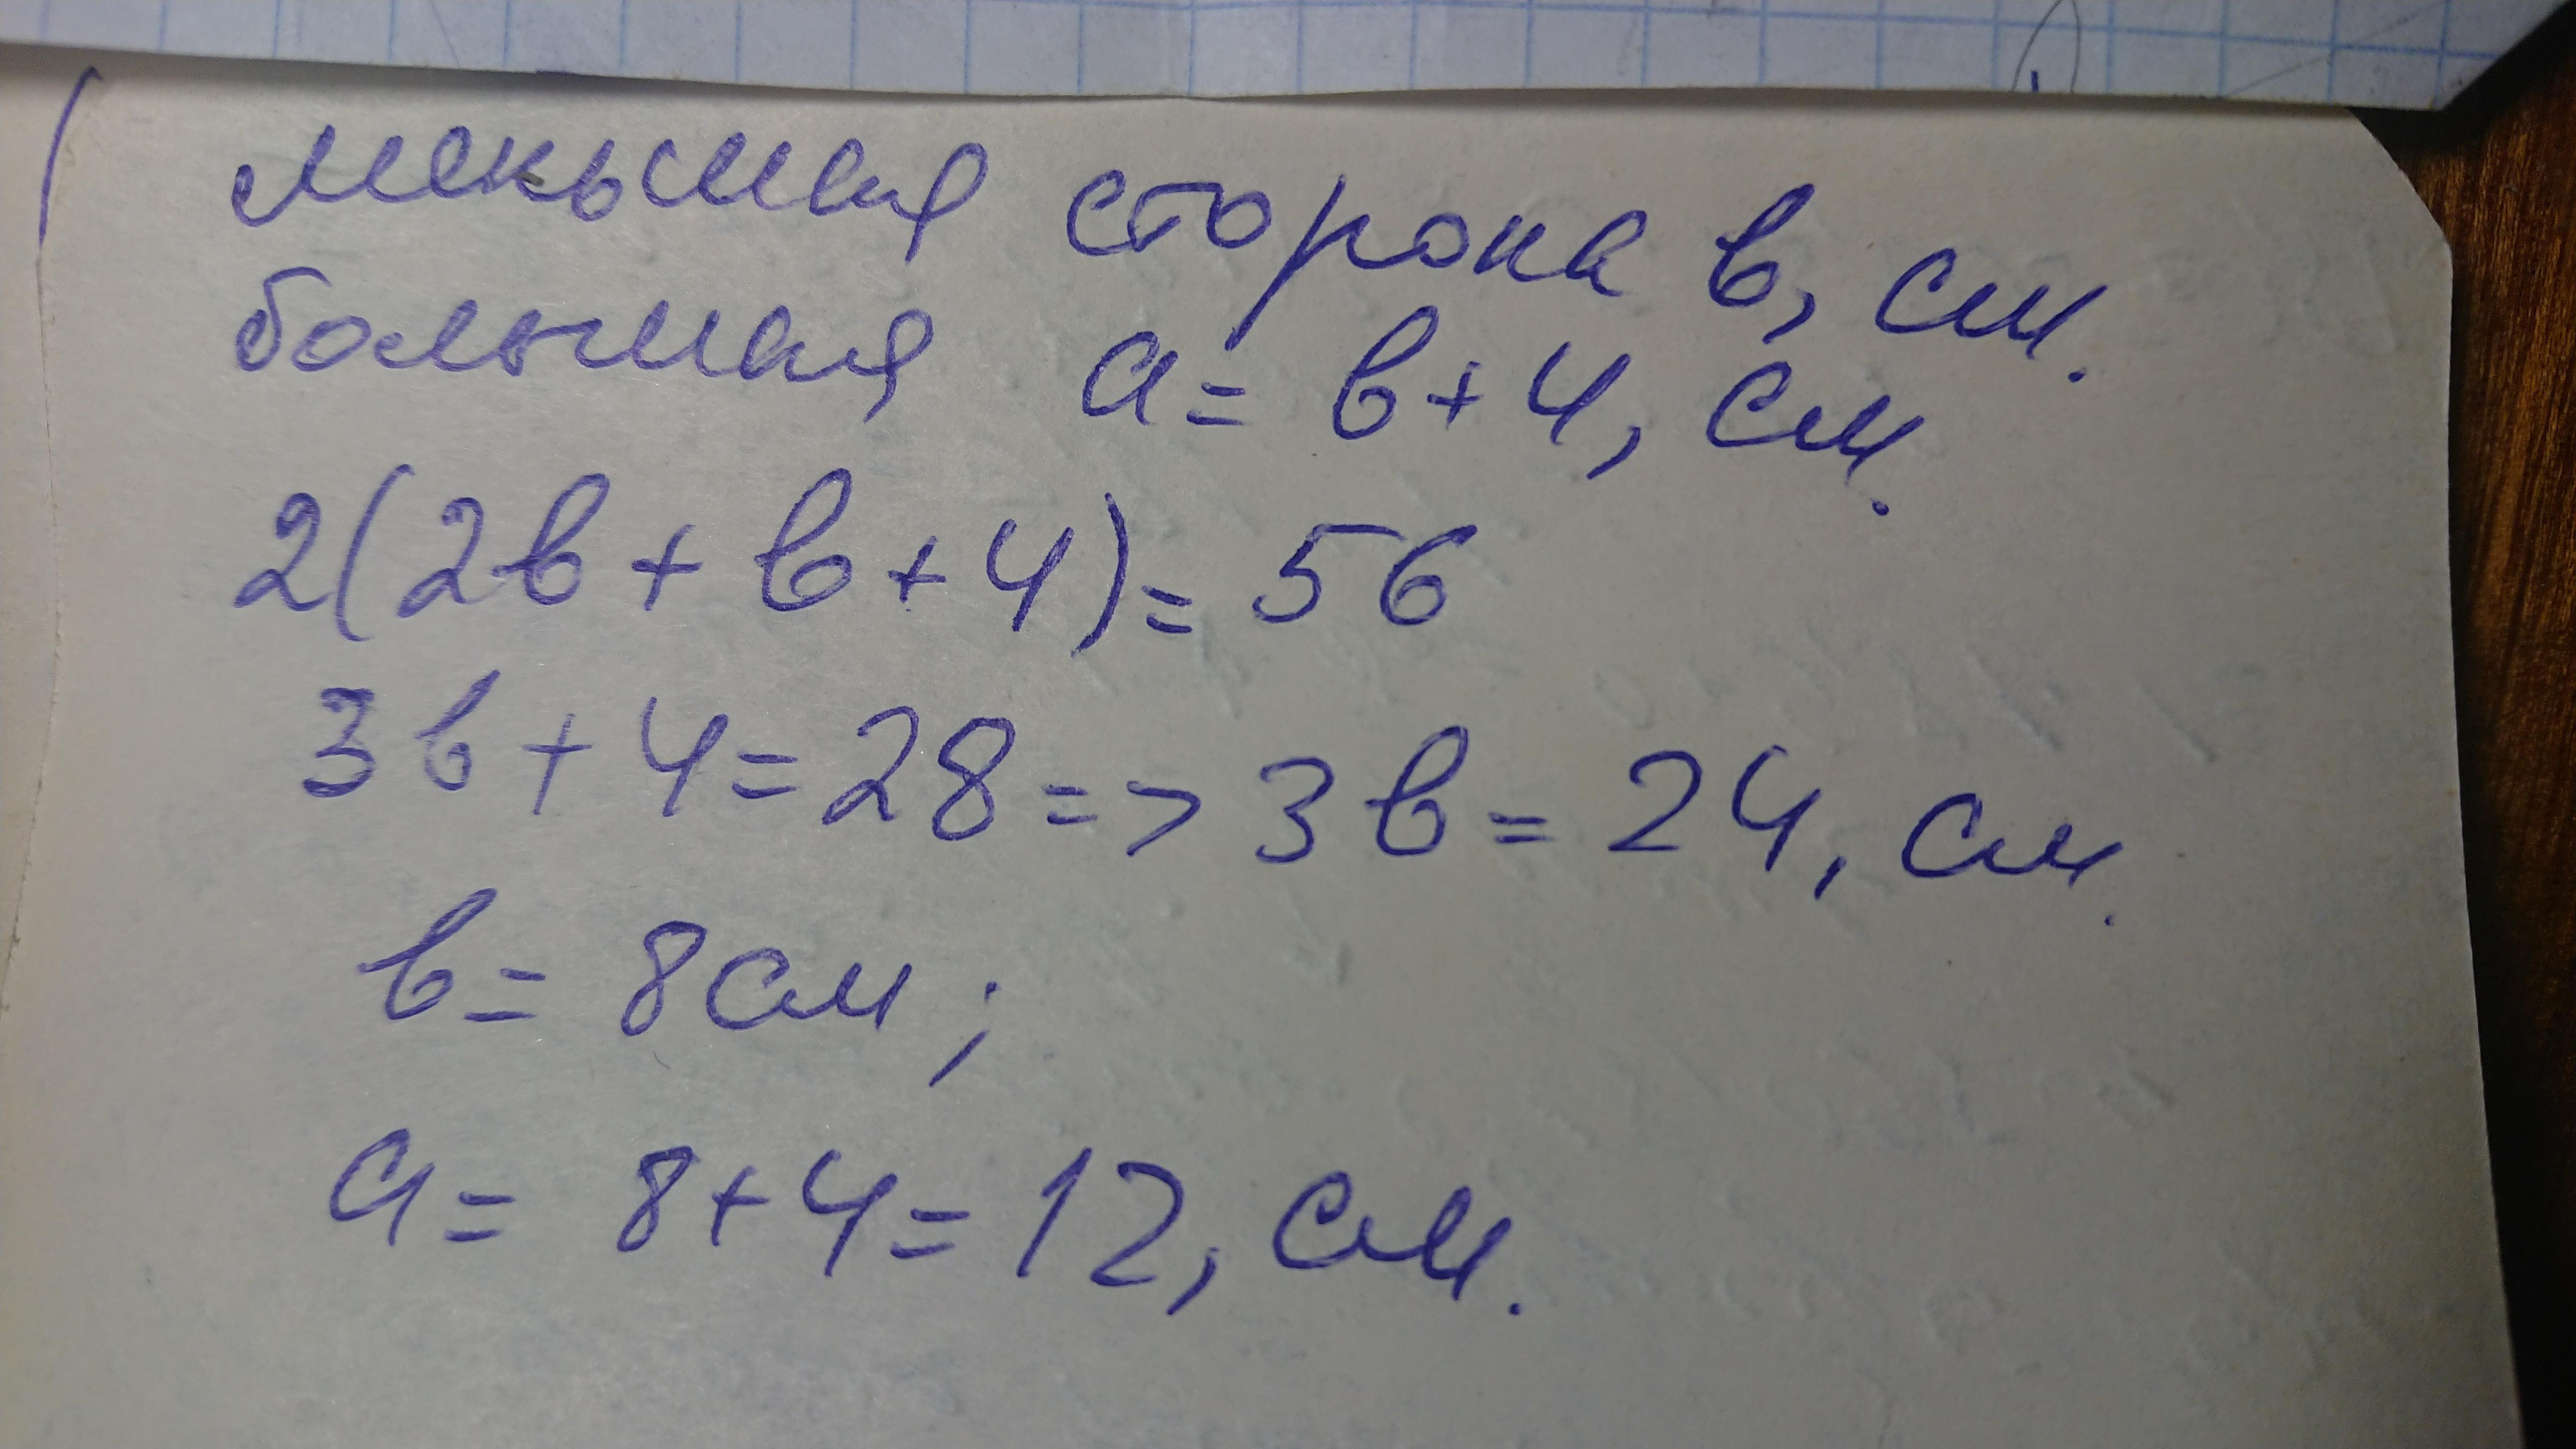 меньшая сторона в, см.
большая а = в + 4, см.
2(2в + в + 4) = 56
3в + 4 = 28 => 3в = 24, см.
в = 8 см;
а = 8 + 4 = 12, см.